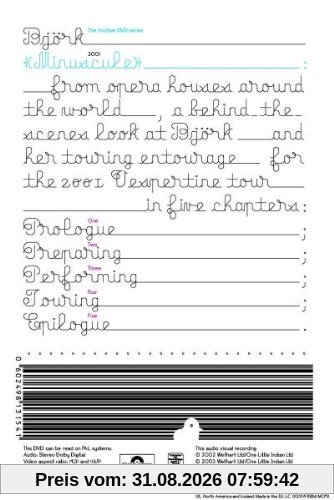 Björk The Archive DVD series
2001
«(Minuscule)» :
from opera houses around
the world , a behind the
scenes look at Björk and
her touring entourage for
the 2001 Vespertine tour
in five chapters:
One
Prologue ;
Two
Preparing ;
Three
Performing ;
Four
Touring ;
Five
Epilogue .
0 602498 131541
This DVD can be read on PAL systems.
Audio: Stereo Dolby Digital.
Video aspect ratio: 14:9 and 16:9.
This audio visual recording
℗ 2002 Wellhart Ltd/One Little Indian Ltd
© 2003 Wellhart Ltd/One Little Indian Ltd
Preis vom: 31.08.2026 07:59:42